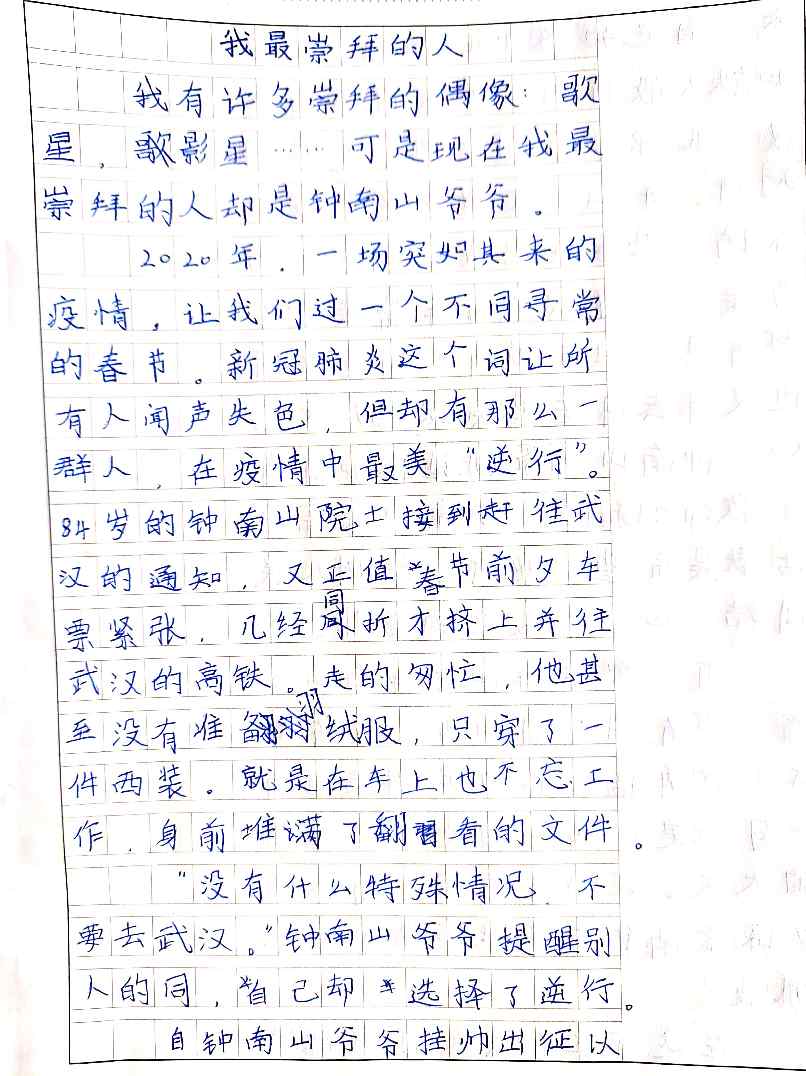 我最崇拜的人
我有许多崇拜的偶像：歌
星，歌影星……可是现在我最
崇拜的人却是钟南山爷爷。
2020年，一场突如其来的
疫情，让我们过一个不同寻常
的春节。新冠肺炎这个词让所
有人闻声失色，但却有那么一
群人，在疫情中最美“逆行”。
84岁的钟南山院士接到赶往武
汉的通知，又正值春节前夕车
票紧张，几经周折才挤上并往
武汉的高铁。走的匆忙，他甚
至没有准备羽绒服，只穿了一
件西装。就是在车上也不忘工
作，身前堆满了翻看的文件。
“没有什么特殊情况，不
要去武汉。”钟南山爷爷提醒别
人的同，自己却选择了逆行。
自钟南山爷爷挂帅出征以